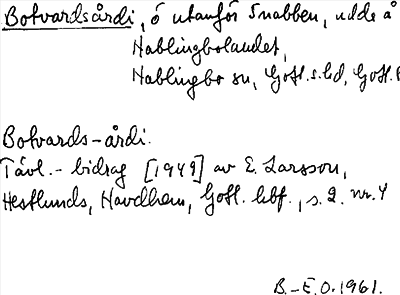 Botvardsårdi, ö utanför Snabben, udde å
Hablingbolandet,
Hablingbo sn, Gotl. s. hd, Gotl.
Botvards-årdi.
Tävl.- bidrag [1949] av E. Larsson,
Hestlunds, Havdhem, Gotl. hbf., s. 2. nr. 4
B.-E.O. 1961.